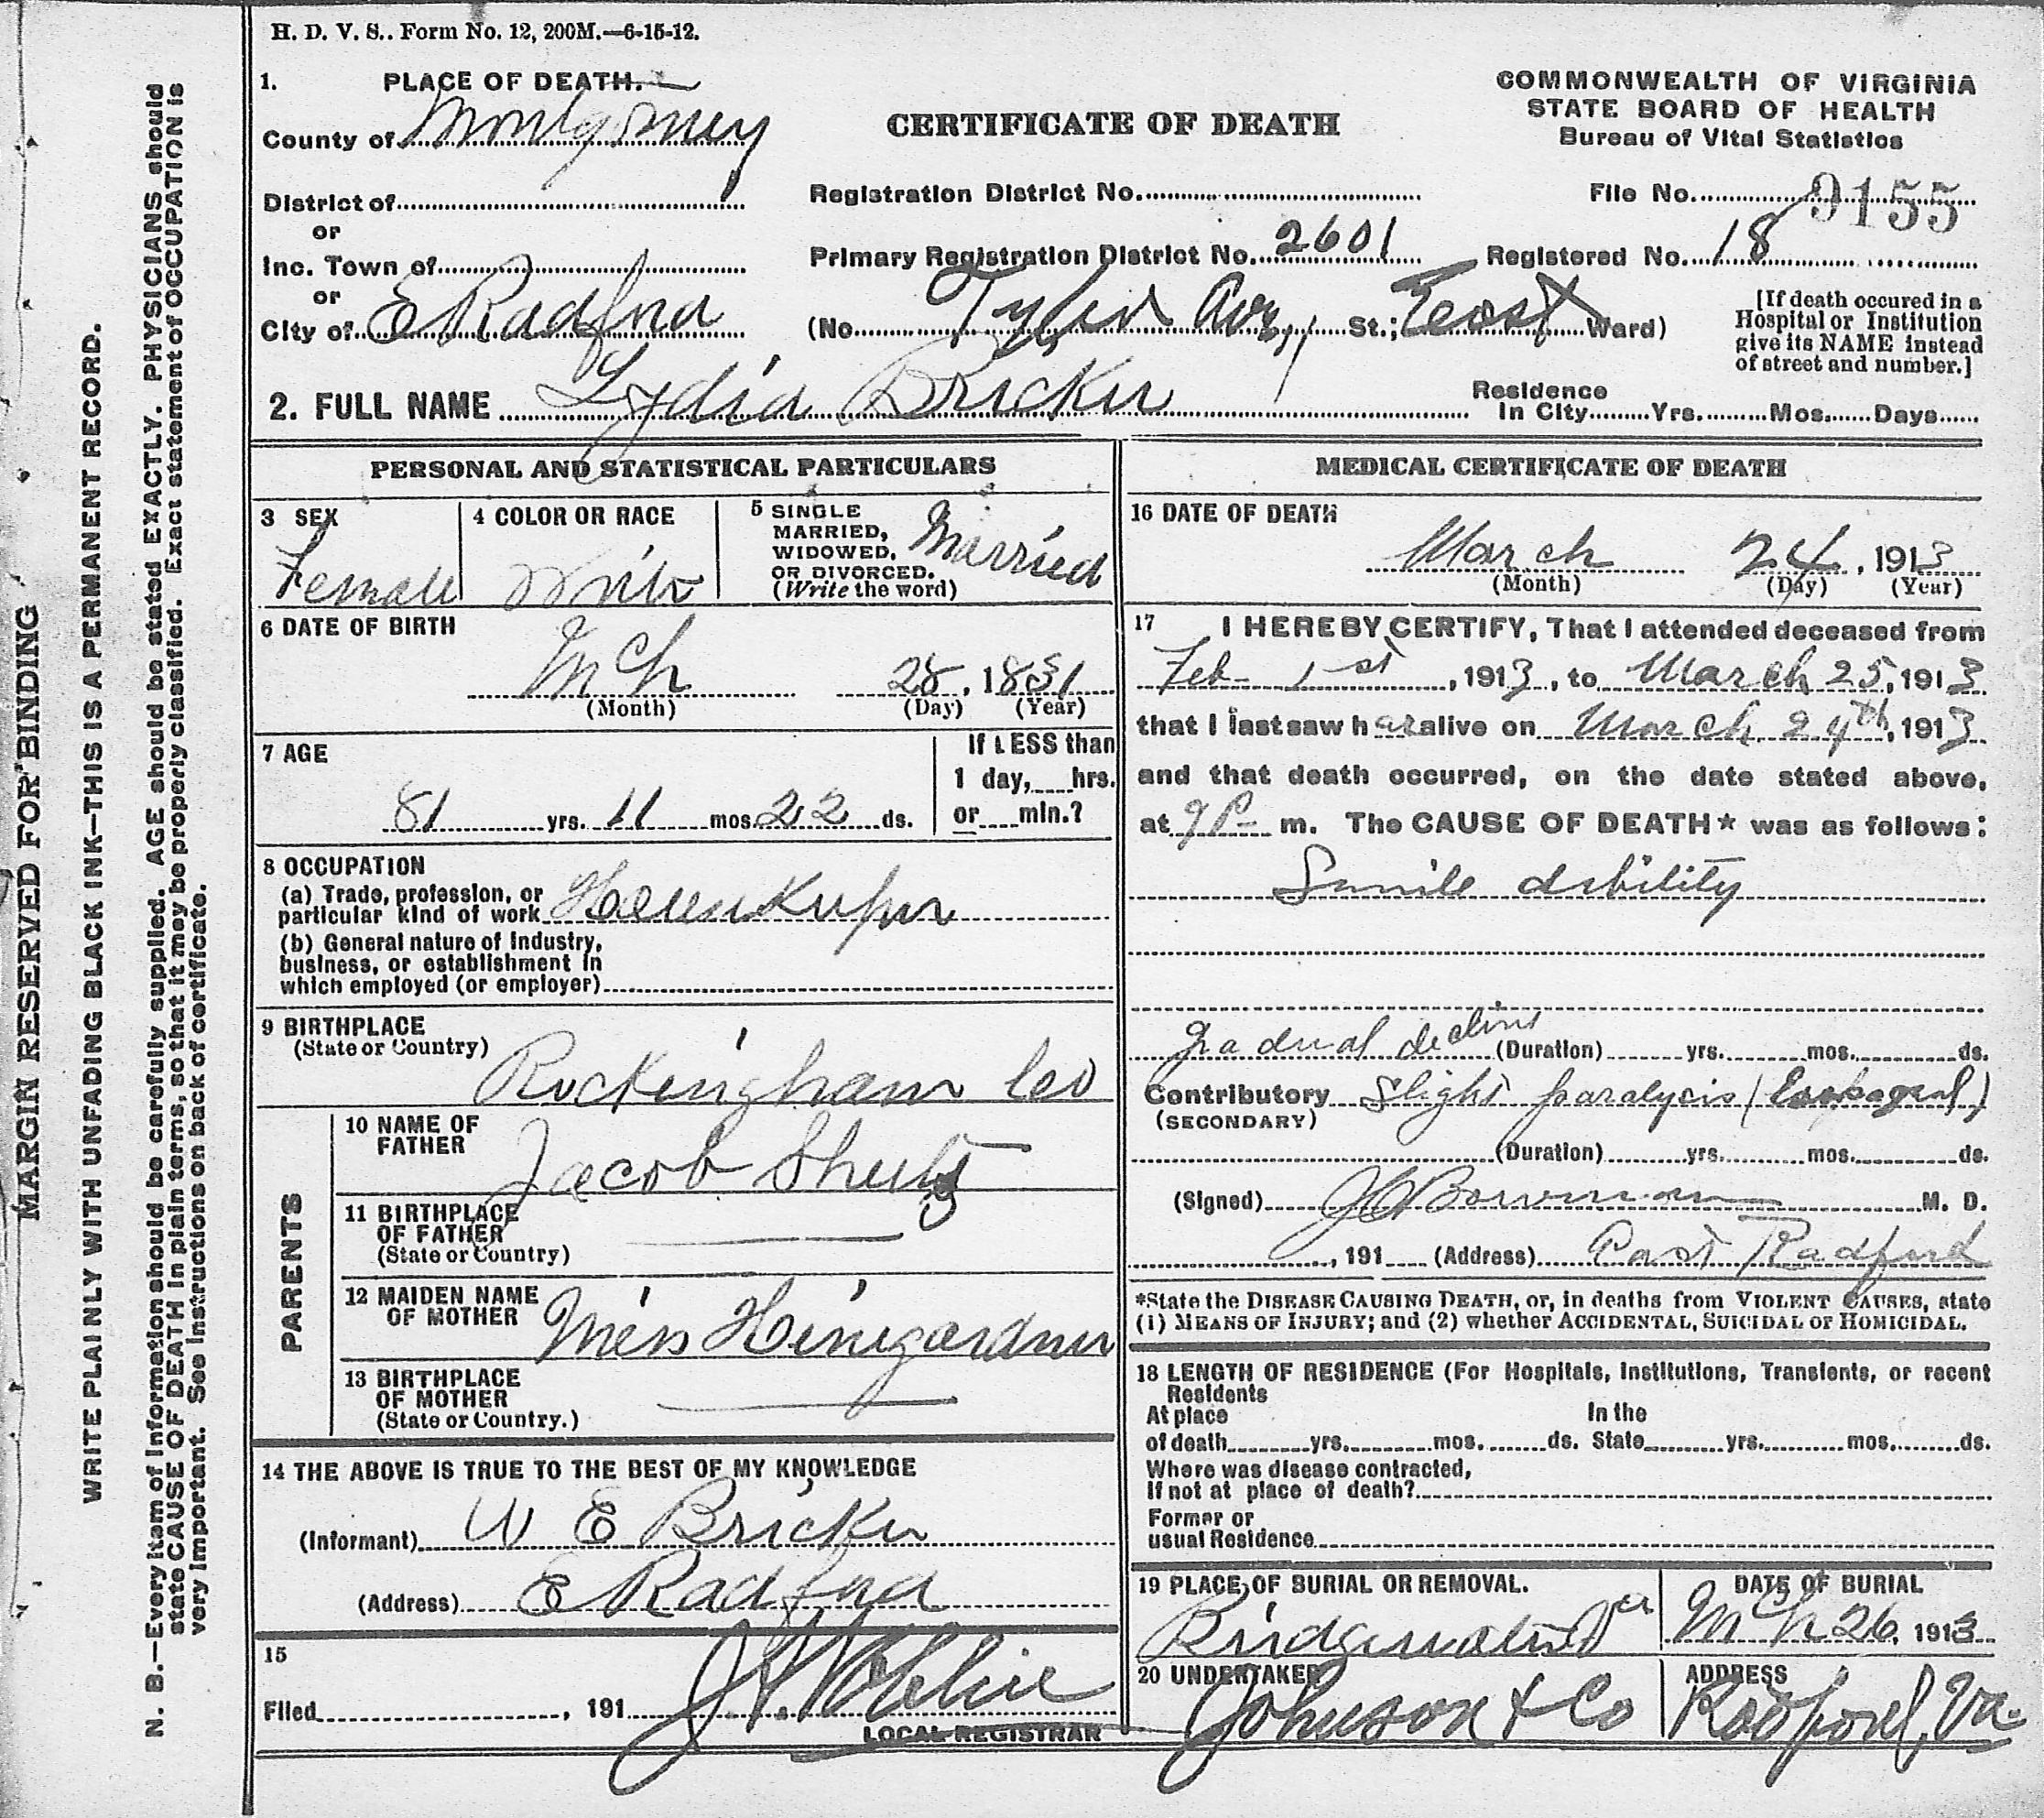 H. D. V. S.. Form No. 12, 200M.—6-15-12.
1. PLACE OF DEATH.
County of Montgomery
District of
or
Inc. Town of
or
City of E Radford
CERTIFICATE OF DEATH
COMMONWEALTH OF VIRGINIA
STATE BOARD OF HEALTH
Bureau of Vital Statistics
Registration District No.
File No. 9155
Primary Registration District No. 2601
Registered No. 18
(No. Tyler Ave, St.; East Ward)
[If death occured in a
Hospital or Institution
give its NAME instead
of street and number.]
2. FULL NAME Lydia Bricker
Residence
In City Yrs. Mos. Days
PERSONAL AND STATISTICAL PARTICULARS
3 SEX
Female
4 COLOR OR RACE
White
5 SINGLE
MARRIED,
WIDOWED,
OR DIVORCED.
(Write the word)
Married
6 DATE OF BIRTH
Mch 28, 1831
(Month) (Day) (Year)
7 AGE
81 yrs. 11 mos. 22 ds.
If LESS than
1 day, hrs.
or min.?
8 OCCUPATION
(a) Trade, profession, or
particular kind of work Housekeeper
(b) General nature of Industry,
business, or establishment in
which employed (or employer)
9 BIRTHPLACE
(State or Country)
Rockingham Co
PARENTS
10 NAME OF
FATHER
Jacob
11 BIRTHPLACE
OF FATHER
(State or Country)
12 MAIDEN NAME
OF MOTHER
Miss Hinegardner
13 BIRTHPLACE
OF MOTHER
(State or Country.)
14 THE ABOVE IS TRUE TO THE BEST OF MY KNOWLEDGE
(Informant) W E Bricker
(Address) E Radford
15
Filed , 191
LOCAL REGISTRAR
MEDICAL CERTIFICATE OF DEATH
16 DATE OF DEATH
March 24, 1913
(Month) (Day) (Year)
17 I HEREBY CERTIFY, That I attended deceased from
Feb 1st, 1913, to March 25, 1913
that I last saw her alive on March 24th, 1913
and that death occurred, on the date stated above,
at 9 P m. The CAUSE OF DEATH* was as follows:
Sinnile debility
gradual decline (Duration) yrs. mos. ds.
Contributory Slight paralysis
(SECONDARY)
(Duration) yrs. mos. ds.
(Signed) Bowman M. D.
, 191 (Address) East Radford
*State the DISEASE CAUSING DEATH, or, in deaths from VIOLENT CAUSES, state
(1) MEANS OF INJURY; and (2) whether ACCIDENTAL, SUICIDAL or HOMICIDAL.
18 LENGTH OF RESIDENCE (For Hospitals, Institutions, Transients, or recent
Residents
At place In the
of death yrs. mos. ds. State yrs. mos. ds.
Where was disease contracted,
If not at place of death?
Former or
usual Residence
19 PLACE OF BURIAL OR REMOVAL.
Bridgewater Va
DATE OF BURIAL
Mch 26, 1913
20 UNDERTAKER
Johnson & Co
ADDRESS
Radford, Va.
MARGIN RESERVED FOR BINDING
WRITE PLAINLY WITH UNFADING BLACK INK—THIS IS A PERMANENT RECORD.
N. B.—Every item of Information should be carefully supplied. AGE should be stated EXACTLY. PHYSICIANS should
state CAUSE OF DEATH in plain terms, so that it may be properly classified. Exact statement of OCCUPATION is
very important. See instructions on back of certificate.